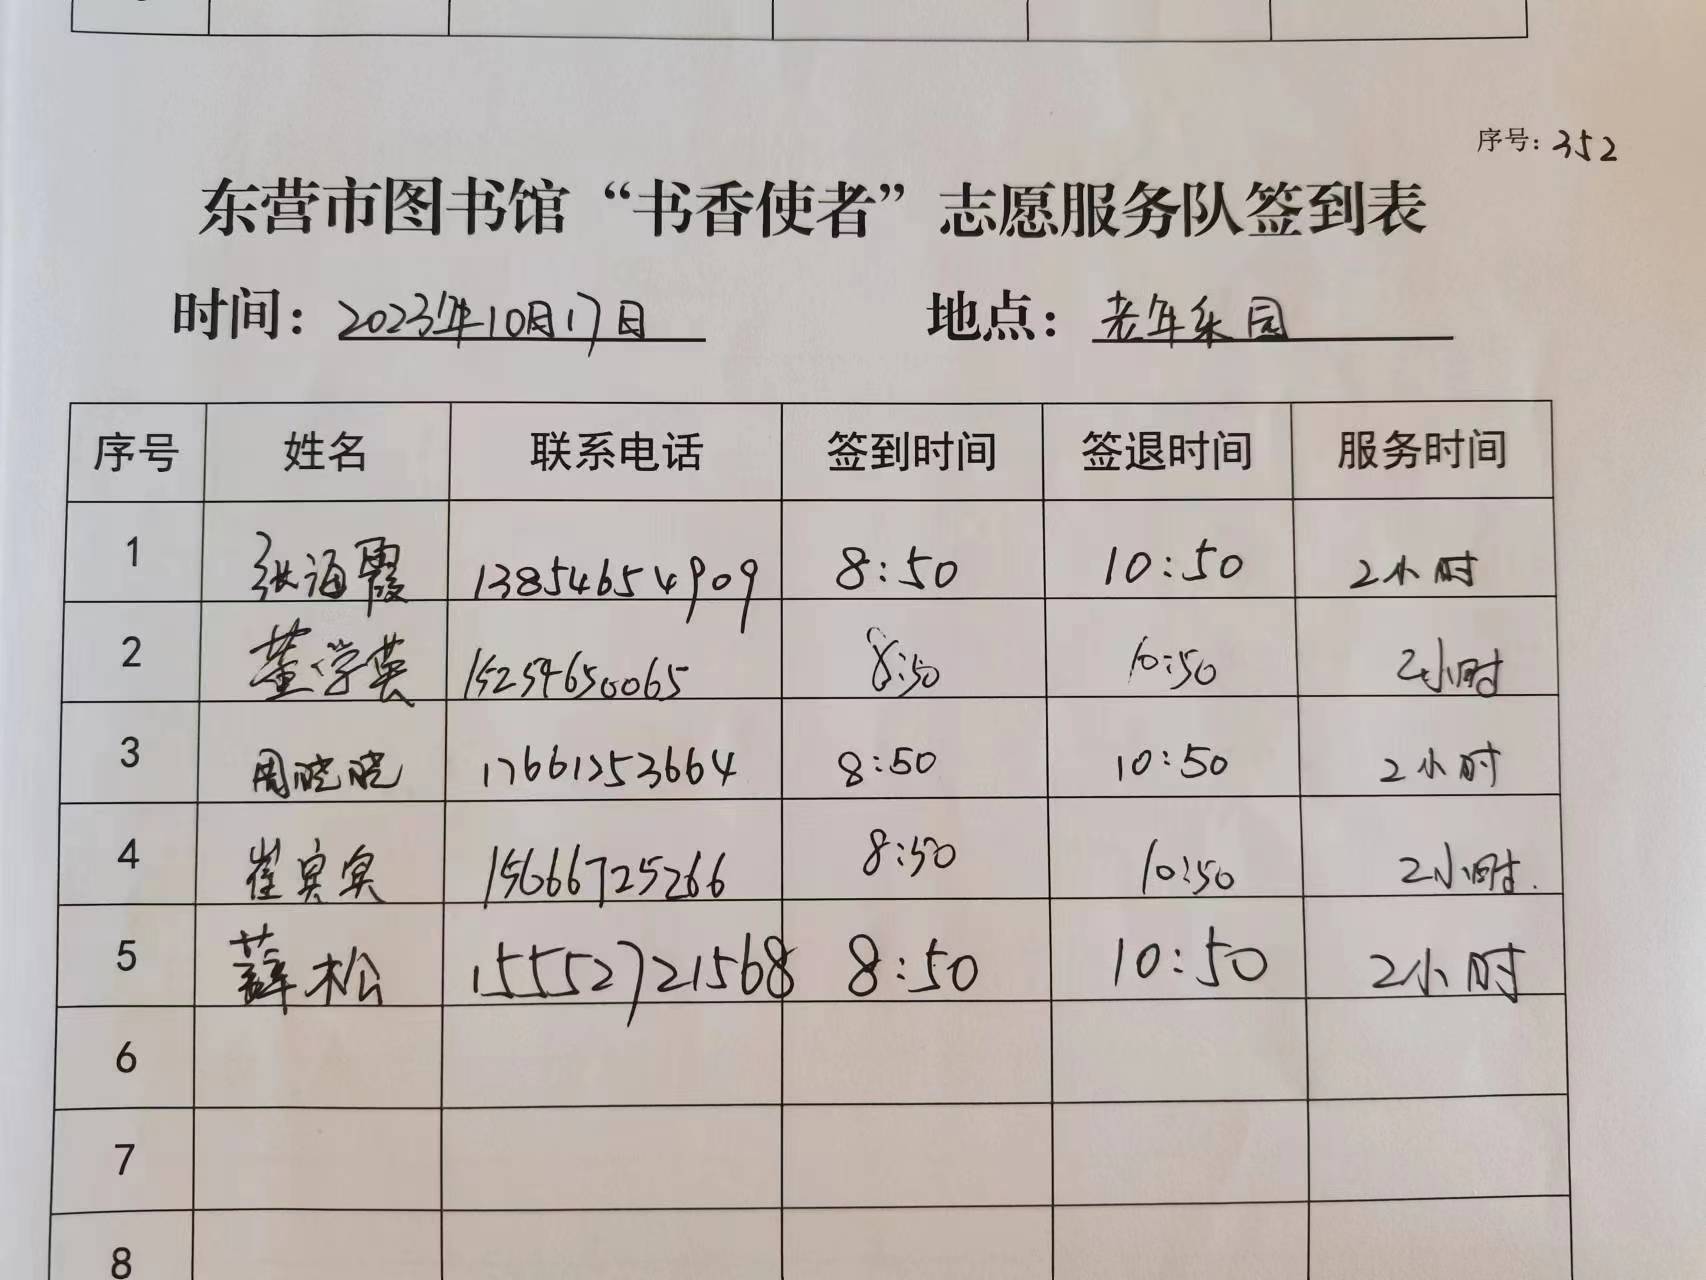 序号：352
东营市图书馆“书香使者”志愿服务队签到表
时间：2023年10月17日 地点：老年乐园
序号 姓名 联系电话 签到时间 签退时间 服务时间
1 张海霞 13854654909 8:50 10:50 2小时
2 董学英 15254650065 8:50 10:50 2小时
3 周晓晓 17661253664 8:50 10:50 2小时
4 崔宾宾 15666725266 8:50 10:50 2小时.
5 薛松 15552721568 8:50 10:50 2小时
6
7
8